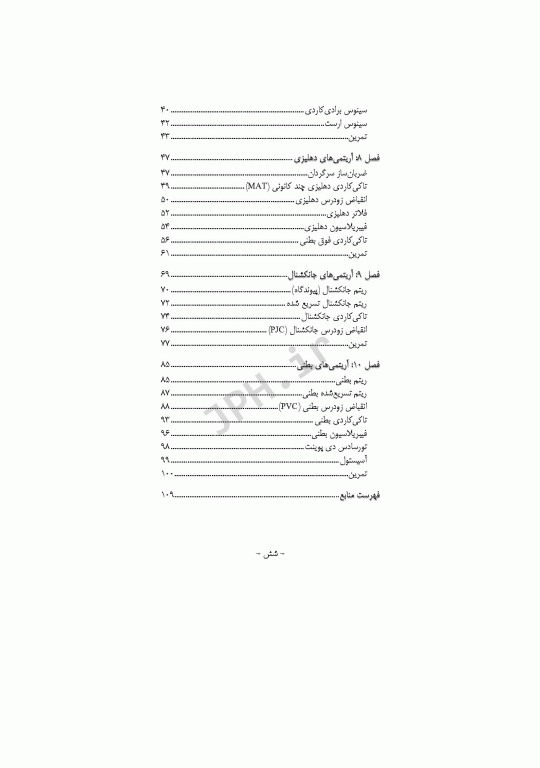 سینوس برادی‌کاردی ۴۰
سینوس ارست ۴۲
تمرین ۴۳
فصل ۸: آریتمی‌های دهلیزی ۴۷
ضربان‌ساز سرگردان ۴۷
تاکی‌کاردی دهلیزی چند کانونی (MAT) ۴۹
انقباض زودرس دهلیزی ۵۰
فلاتر دهلیزی ۵۲
فیبریلاسیون دهلیزی ۵۴
تاکی‌کاردی فوق بطنی ۵۶
تمرین ۶۱
فصل ۹: آریتمی‌های جانکشنال ۶۹
ریتم جانکشنال (پیوندگاه) ۷۰
ریتم جانکشنال تسریع شده ۷۲
تاکی‌کاردی جانکشنال ۷۴
انقباض زودرس جانکشنال (PJC) ۷۶
تمرین ۷۷
فصل ۱۰: آریتمی‌های بطنی ۸۵
ریتم بطنی ۸۵
ریتم تسریع‌شده بطنی ۸۷
انقباض زودرس بطنی (PVC) ۸۸
تاکی‌کاردی بطنی ۹۳
فیبریلاسیون بطنی ۹۶
تورسادس دی پوینت ۹۸
آسیستول ۹۹
تمرین ۱۰۰
فهرست منابع ۱۰۹
~ شش ~
JPH.ir